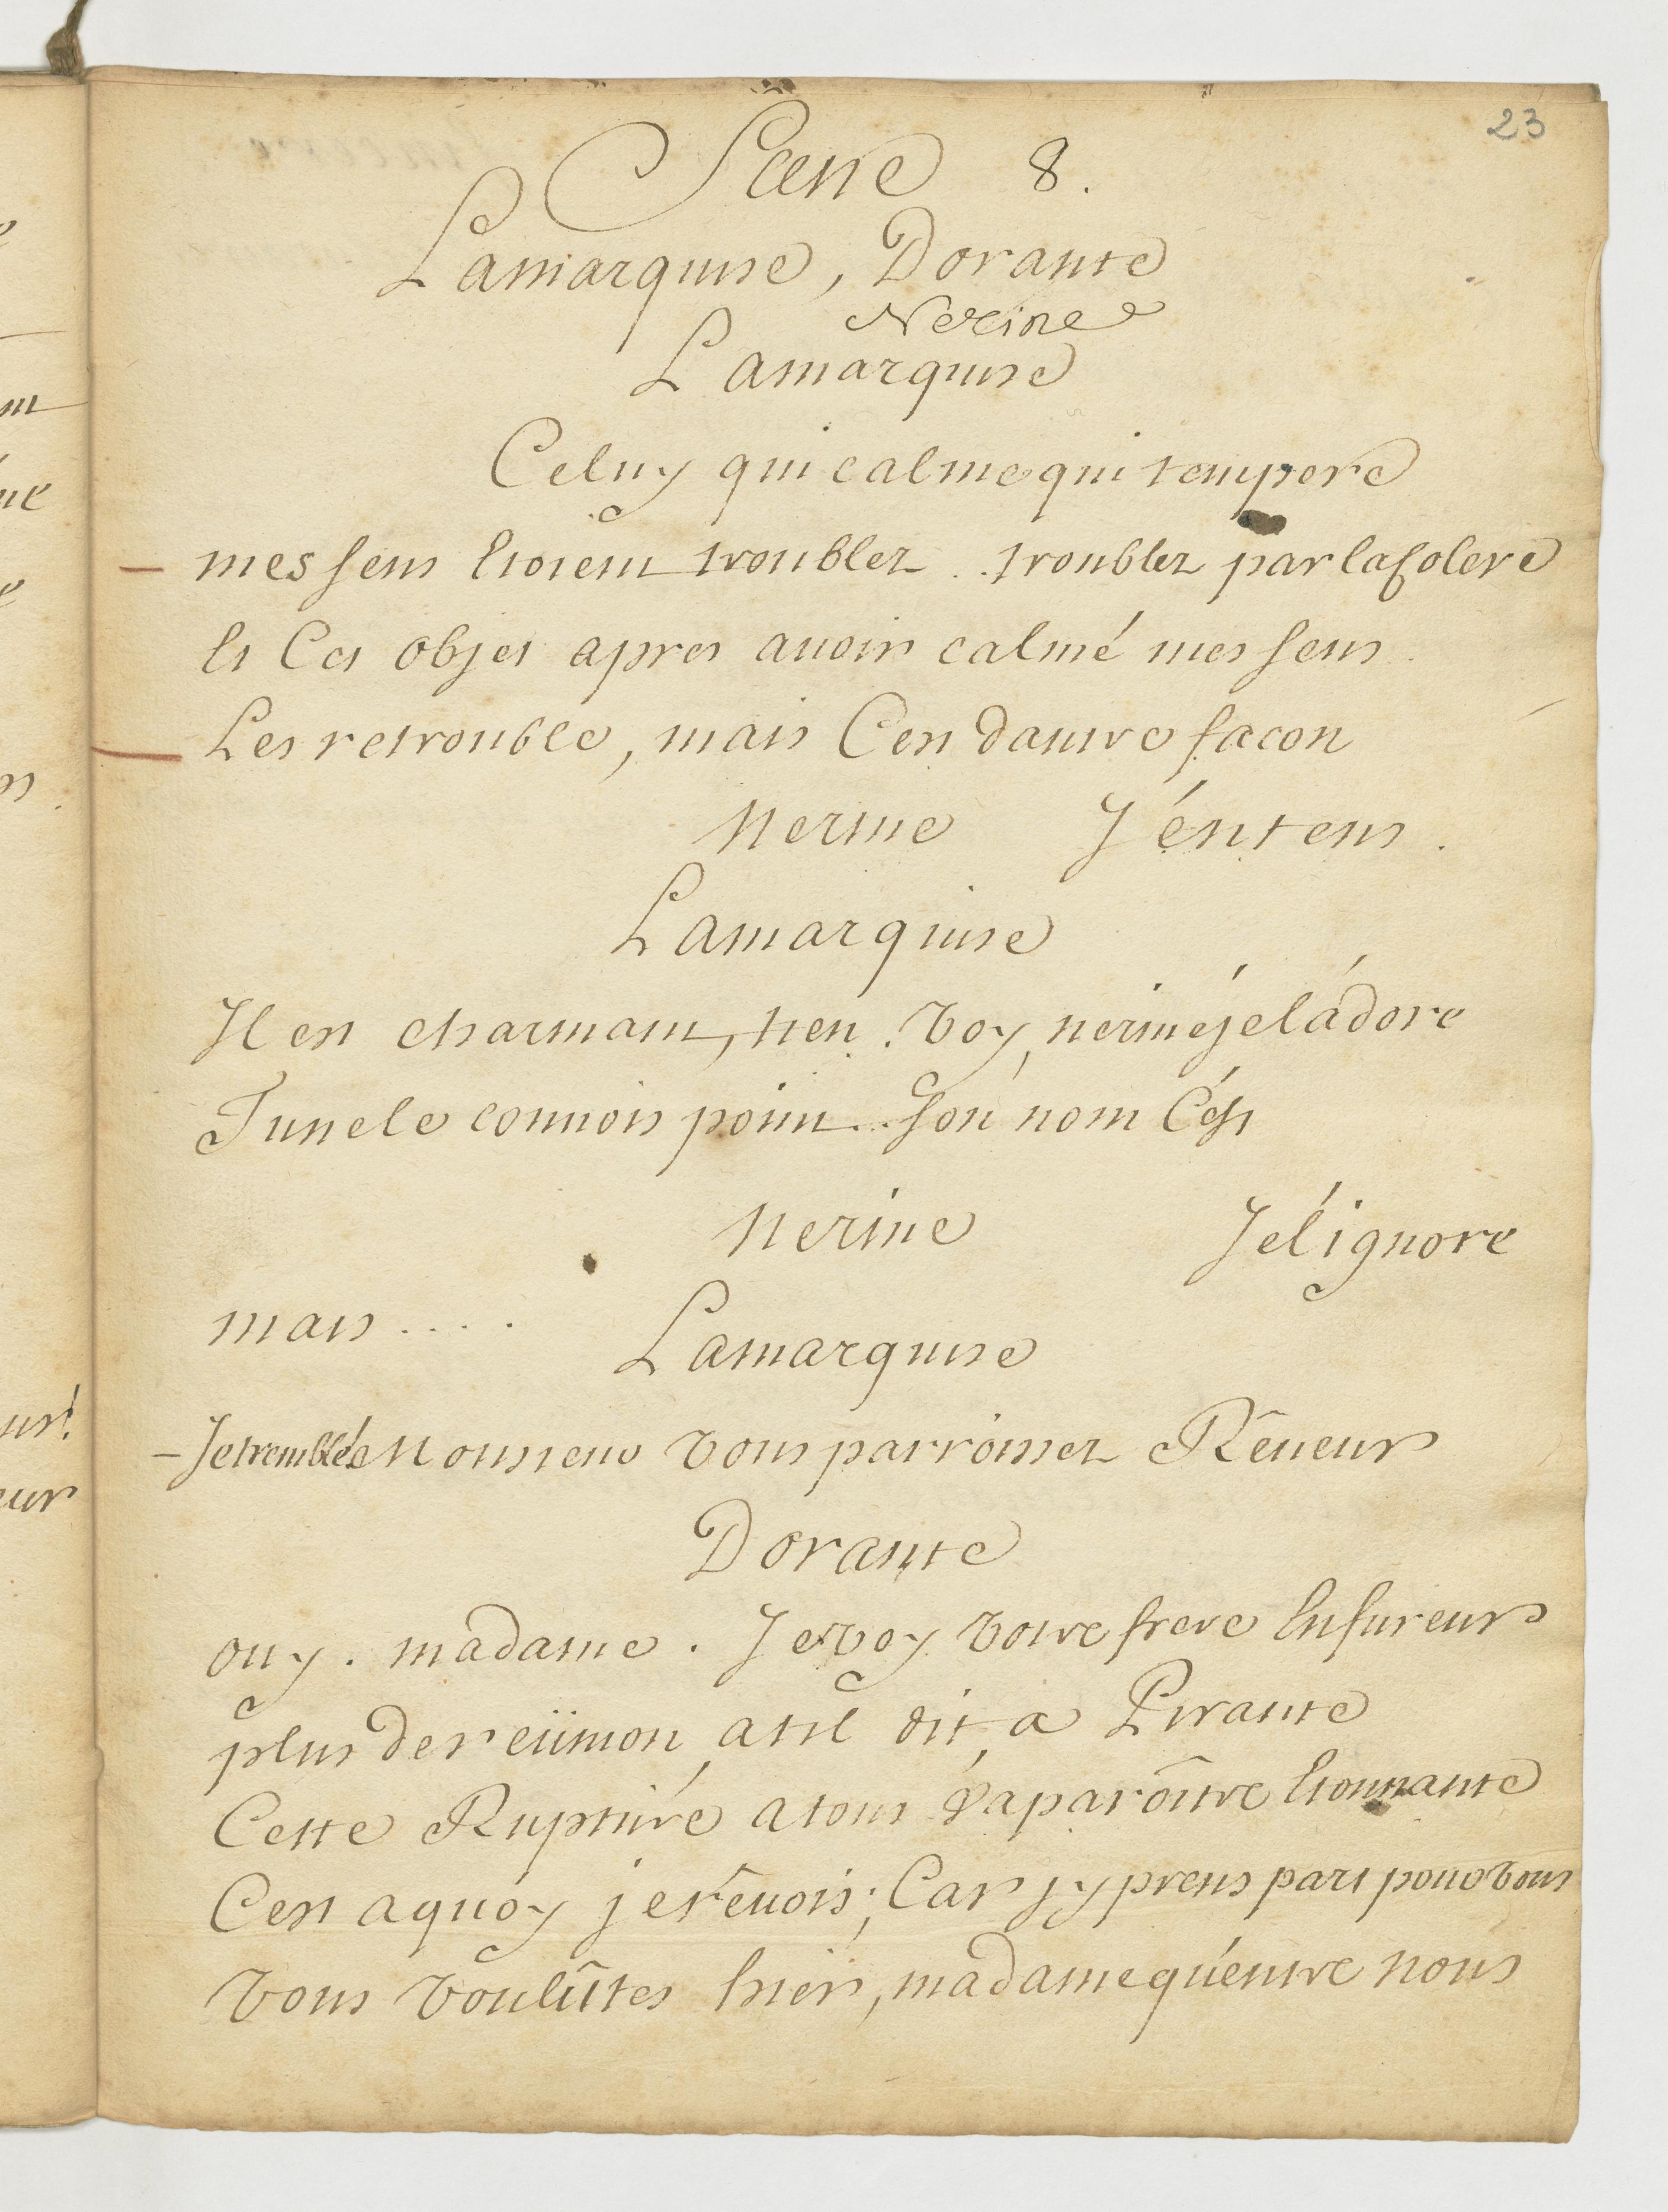 23
Scene 8.
Lamarquise, Dorante
Nerine
Lamarquise
Celuy qui calme qui tempere
mes sens Etoient troublez.. troublez par la Colere
Et Cet objet apres avoir calmé mes sens.
Les retrouble, mais C'est dautre facon
Nerine J'éntens.
Lamarquise
Il est charmant, tien. Voy, nerine je l'adore
Tu ne le connois point... son nom C'est
Nerine Je l'ignore
mais ....
Lamarquise
– Je tremble Monsieur vous parroissez Rêveur
Dorante
ouy. madame. Je voy votre frere En fureur
plus de reünion, at il dit, a Pirante
Cette Rupture a tous d'aparoître Etonnante
C'est aquoy je rêvois; Car j'y prens part pour vous
vous voulûtes hier, madame qu'entre nous